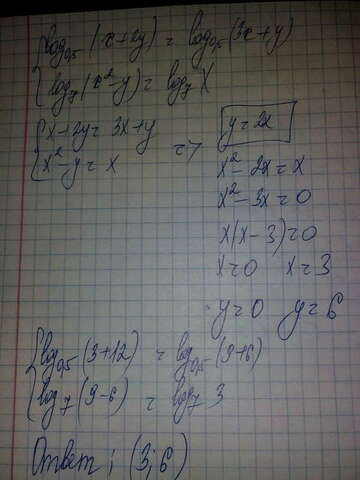 {log₀,₅(x+2y) = log₀,₅(3x+y)
{log₇(x²-y) = log₇ x
{x+2y = 3x+y
{x²-y = x
=> y = 2x
x²-2x = x
x²-3x = 0
x(x-3) = 0
x = 0 x = 3
y = 0 y = 6
{log₀,₅(3+12) = log₀,₅(9+6)
{log₇(9-6) = log₇ 3
Ответ: (3; 6)